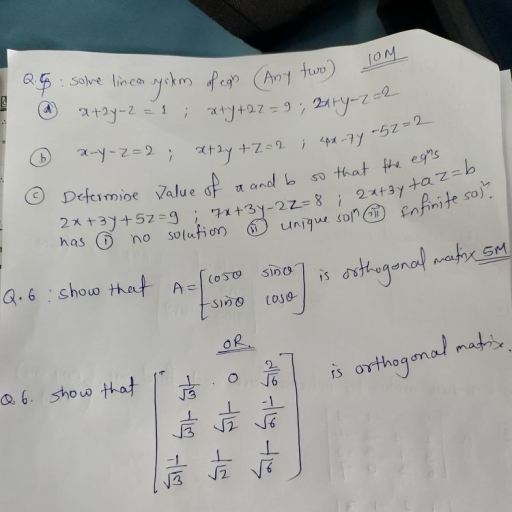 Q.5 : solve linear system of eqn (Any two) 10M
(a) x+2y-z = 1 ; x+y+2z = 9 ; 2x+y-z=2
(b) x-y-z=2 ; x+2y+z=2 ; 4x-7y-5z=2
(c) Determine value of a and b so that the eqns
2x+3y+5z=9 ; 7x+3y-2z=8 ; 2x+3y+az=b
has (i) no solution (ii) unique soln (iii) infinite soln.
Q.6 : show that A = [cosθ sinθ -sinθ cosθ] is orthogonal matrix 5M
OR.
Q.6. show that is orthogonal matrix.
1/√3 0 2/√6
1/√3 1/√2 -1/√6
-1/√3 1/√2 1/√6